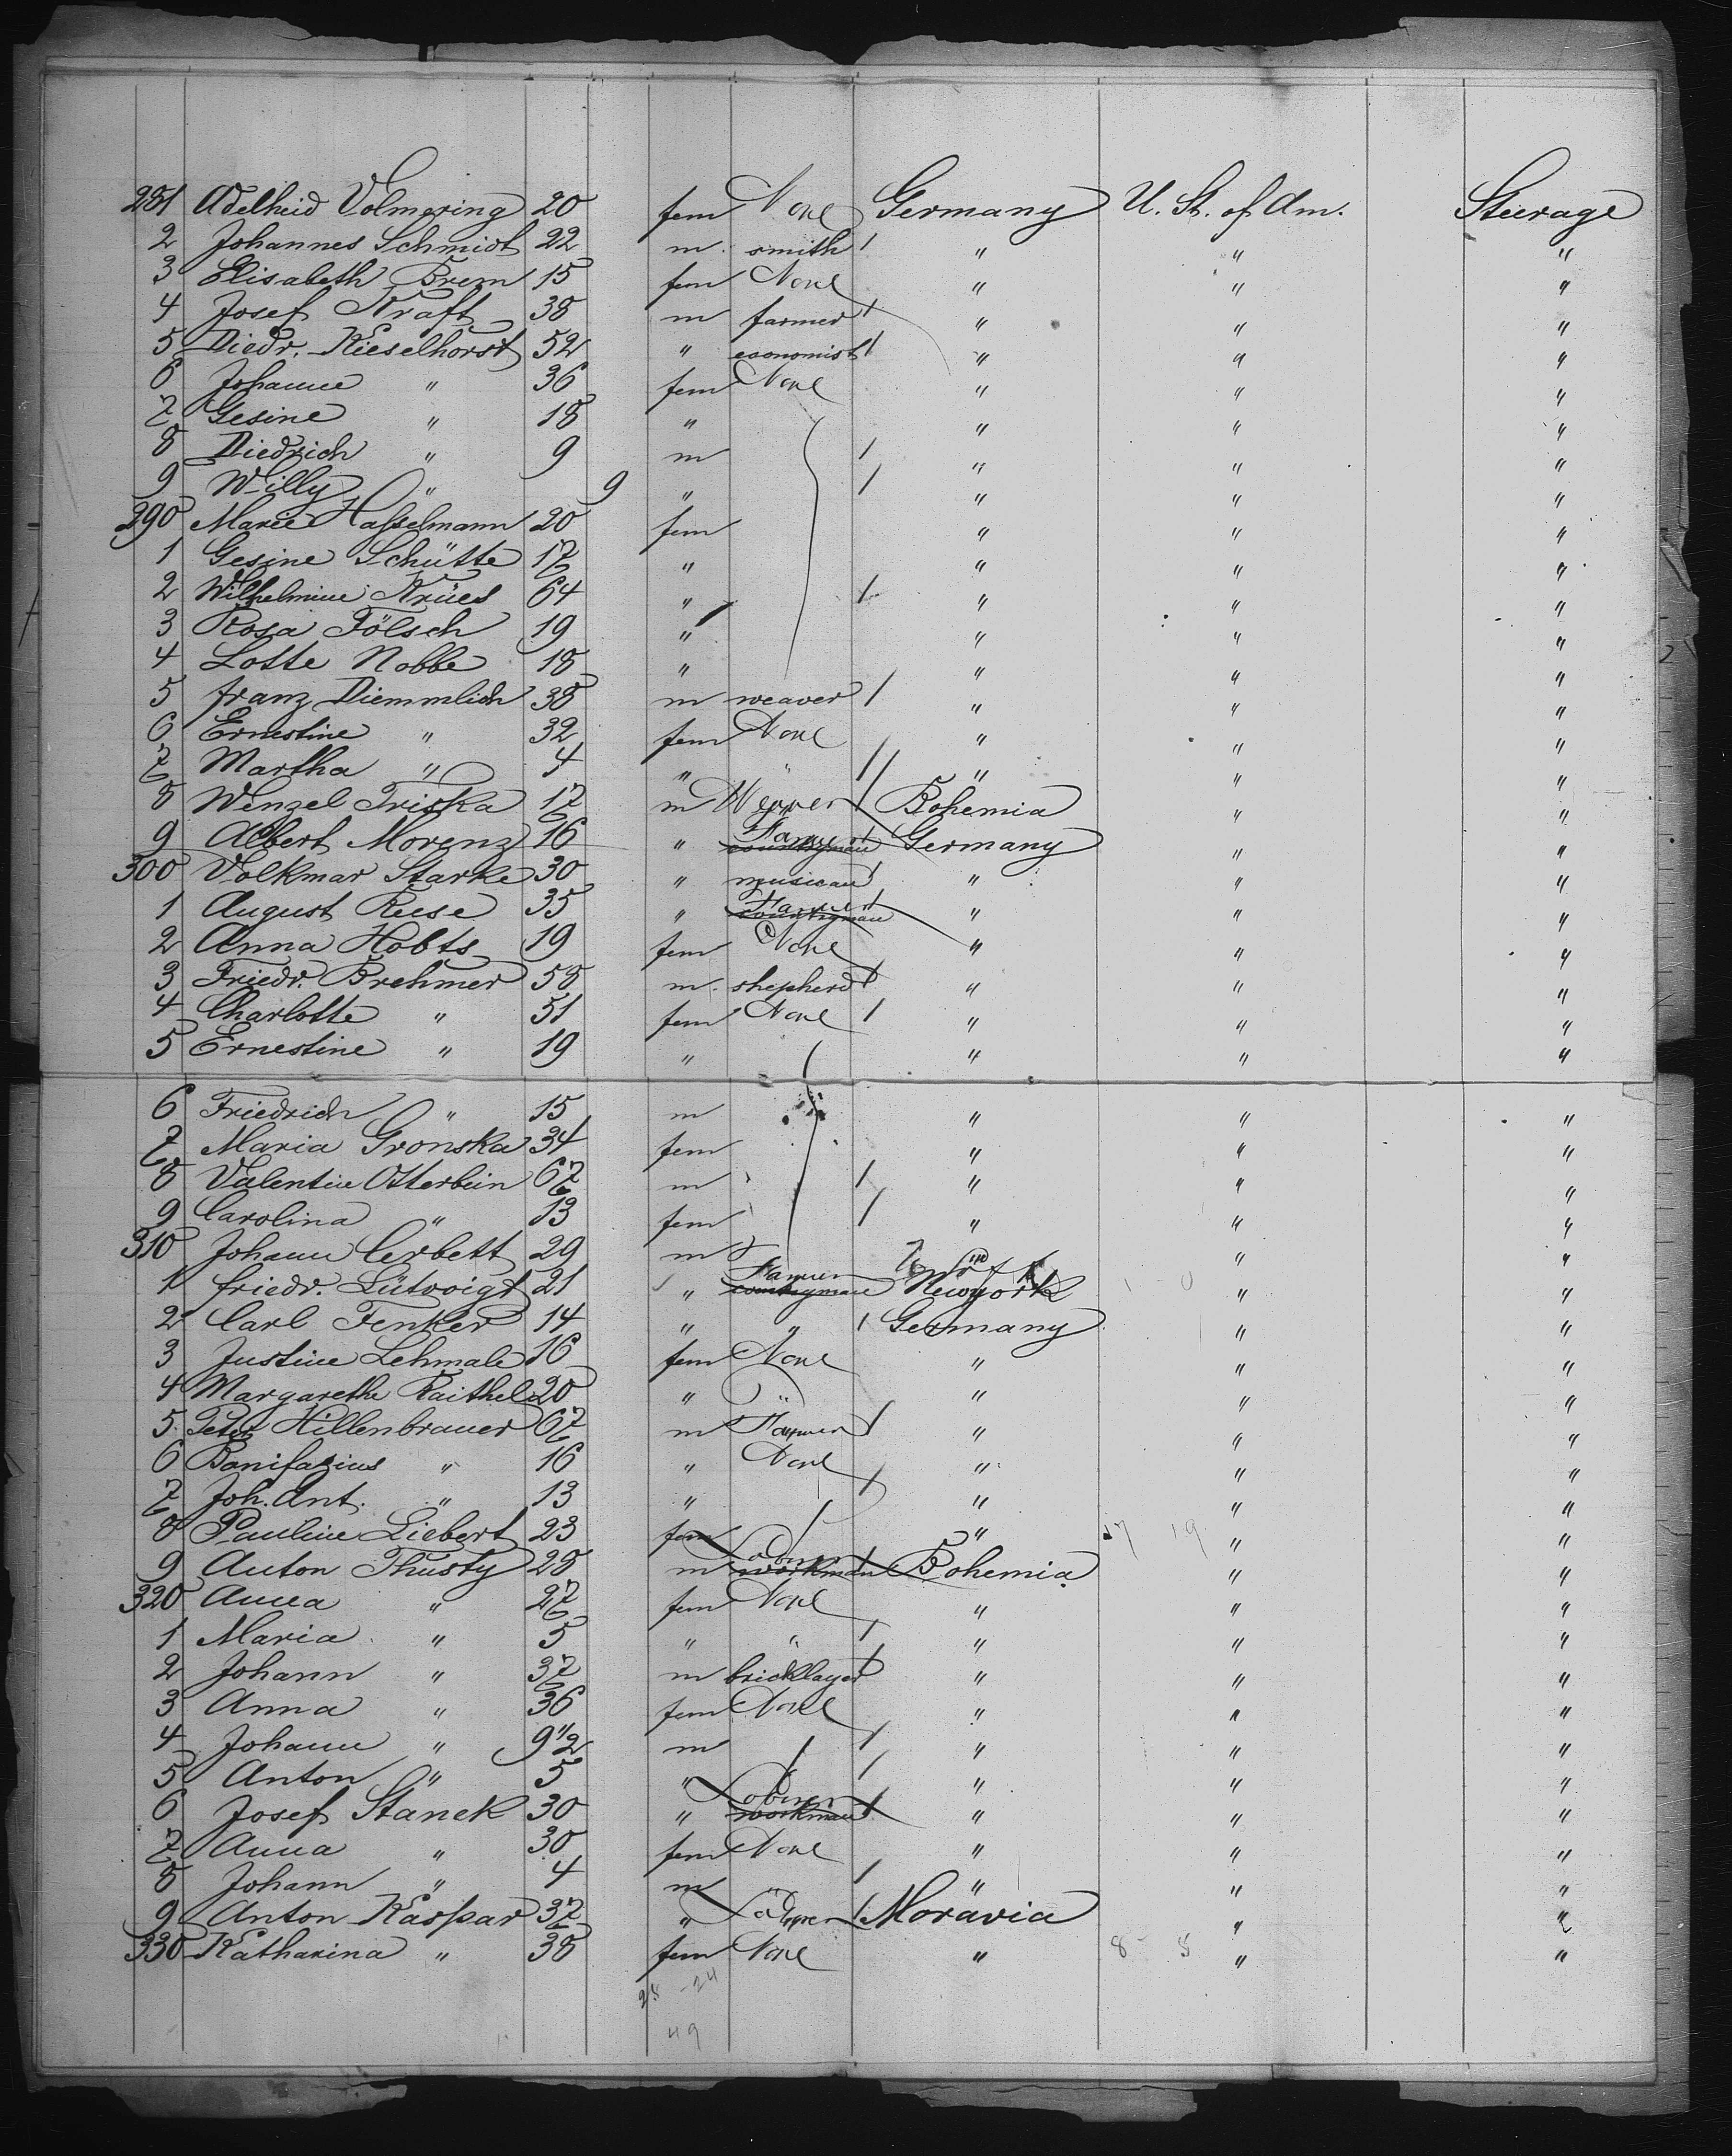 281 Adelheid Volmering 20 fem None Germany U. St. of Am. Steerage
2 Johannes Schmidt 22 m. smith / " " "
3 Elisabeth Brem 15 fem None " " "
4 Josef Kraft 38 m farmer / " " "
5 Diedr. Kieselhorst 52 " economist / " " "
6 Johanne " 36 fem None " " "
7 Gesine " 18 " " " "
8 Diedrich " 9 m / " " "
9 Willy " 9 " / " " "
290 Marie Hasselmann 20 fem " " "
1 Gesine Schütte 17 " " " "
2 Wilhelmine Krües 64 " / " " "
3 Rosa Fölsch 19 " " " "
4 Lotte Nobbe 18 " " " "
5 Franz Diemmlich 38 m weaver / " " "
6 Ernestine " 32 fem None " " "
7 Martha " 4 " " / " " "
8 Wenzel Triska 17 m Weaver / Bohemia " "
9 Albert Morenz 16 " Farmer countryman / Germany " "
300 Volkmar Starke 30 " musican / " " "
1 August Reese 35 " Farmer countryman / " " "
2 Anna Hobts 19 fem None " " "
3 Friedr. Brehmer 58 m. shepherd / " " "
4 Charlotte " 51 fem None / " " "
5 Ernestine " 19 " " " "
6 Friedrich " 15 m " " "
7 Maria Gronska 34 fem " " "
8 Valentin Otterbein 67 m / " " "
9 Carolina " 13 fem / " " "
310 Johann Cerbett 29 m " "
1 Friedr. Lütvoigt 21 " Farmer countryman Newyork " "
2 Carl Fenker 14 " " / Germany " "
3 Justine Lehmale 16 fem None " " "
4 Margarethe Raithel 20 " " " " "
5 Peter Hillenbrauer 67 m Farmer / " " "
6 Bonifazius " 16 " None / " " "
7 Joh. Ant. " 13 " " " "
8 Pauline Liebert 23 fem " 17 19 " "
9 Anton Thusty 28 m Laborer workman / Bohemia " "
320 Anna " 27 fem None " " "
1 Maria " 5 " " / " " "
2 Johann " 37 m bricklayer / " " "
3 Anna " 36 fem None " " "
4 Johann " 9 1/2 m / " " "
5 Anton " 5 " / " " "
6 Josef Stanek 30 " Laborer workman / " " "
7 Anna " 30 fem None " " "
8 Johann " 4 m " / " " "
9 Anton Kaspar 37 " Laborer / Moravia " "
330 Katharina " 38 fem None " 8 - 8 " "
25 - 24
49